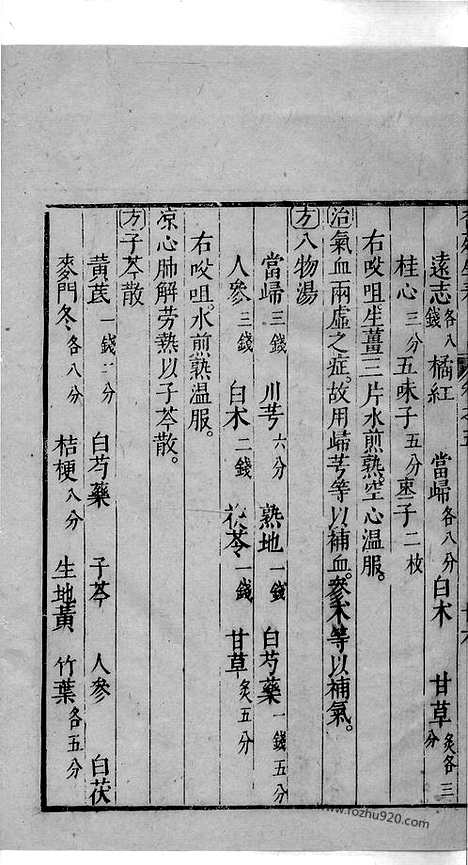 遠志各八錢 橘紅 當歸各八分 白术 甘草炙各三分
桂心三分 五味子五分 棗子二枚
右㕮咀生薑三片水煎熟空心溫服。
治氣血兩虛之症。故用歸芎等以補血。參术等以補氣。
方八物湯
當歸三錢 川芎六分 熟地一錢 白芍藥一錢五分
人參三錢 白术二錢 茯苓一錢 甘草炙五分
右㕮咀。水煎熟溫服。
凉心肺解劳熱以子芩散。
方子芩散
黃芪一錢二分 白芍藥 子芩 人參 白茯
麥門冬各八分 桔梗八分 生地黃 竹葉各五分
www.fozhu920.com